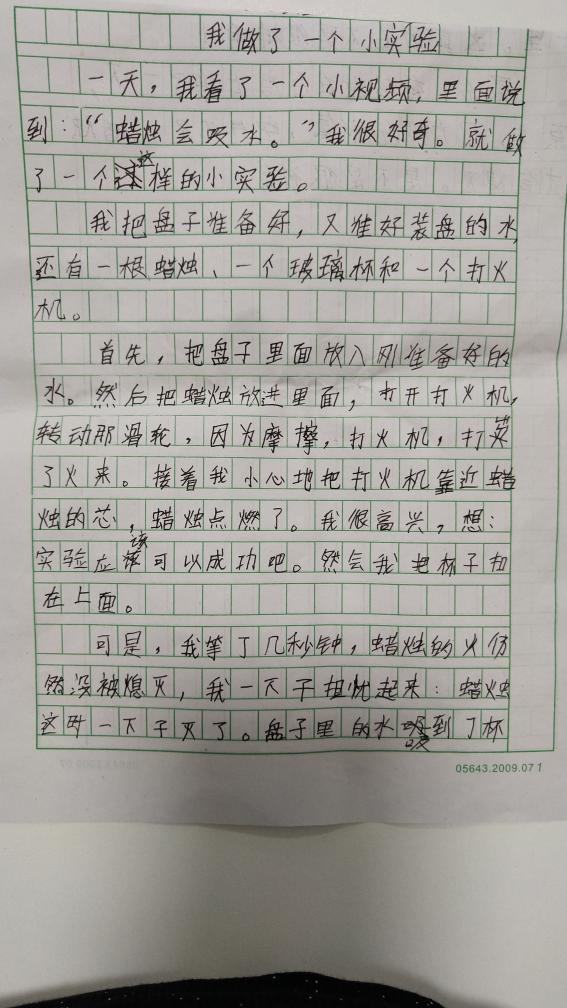 我做了一个小实验
一天，我看了一个小视频，里面说
到：“蜡烛会吸水。”我很好奇。就做
了一个这样的小实验。
我把盘子准备好，又准好装盘的水，
还有一根蜡烛、一个玻璃杯和一个打火
机。
首先，把盘子里面放入刚准备好的
水。然后把蜡烛放进里面，打开打火机，
转动那滑轮，因为摩擦，打火机，打
了火来。接着我小心地把打火机靠近蜡
烛的芯，蜡烛点燃了。我很高兴，想：
实验应该可以成功吧。然会我把杯子扣
在上面。
可是，我等了几秒钟，蜡烛的火仍
然没被熄灭，我一下子担忧起来：蜡烛
这时一下子灭了。盘子里的水吸到了杯
05643.2009.071